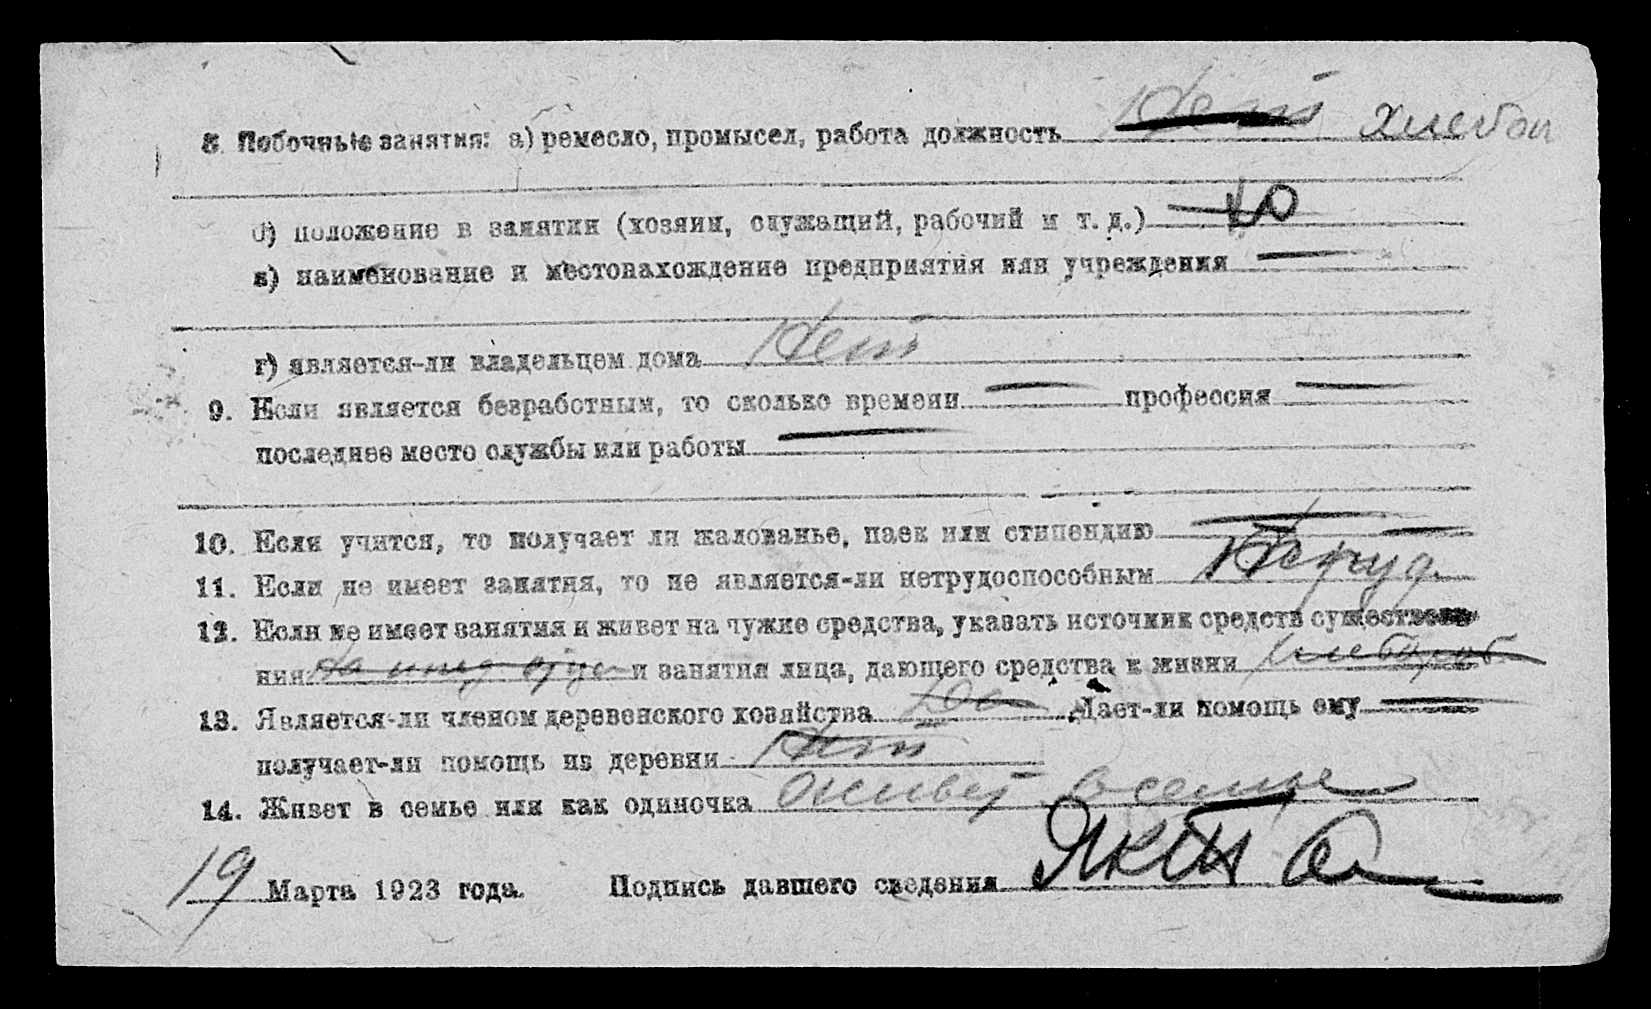 8. Побочные занятия: а) ремесло, промысел, работа должность Нет хлебоп
б) положение в занятии (хозяин, служащий, рабочий и т. д.)
в) наименование и местонахождение предприятия или учреждения —
г) является-ли владельцем дома Нет
9. Если является безработным, то сколько времени — профессия —
последнее место службы или работы —
10. Если учится, то получает ли жалованье, паек или стипендию —
11. Если не имеет занятия, то не является-ли нетрудоспособным Нетруд.
12. Если не имеет занятия и живет на чужие средства, указать источник средств существова-
ния: На ижд отца и занятия лица, дающего средства к жизни хлебороб
13. Является-ли членом деревенского хозяйства Да Дает-ли помощь ему —
получает-ли помощь из деревни Нет
14. Живет в семье или как одиночка живет в семье
19 Марта 1923 года. Подпись давшего сведения